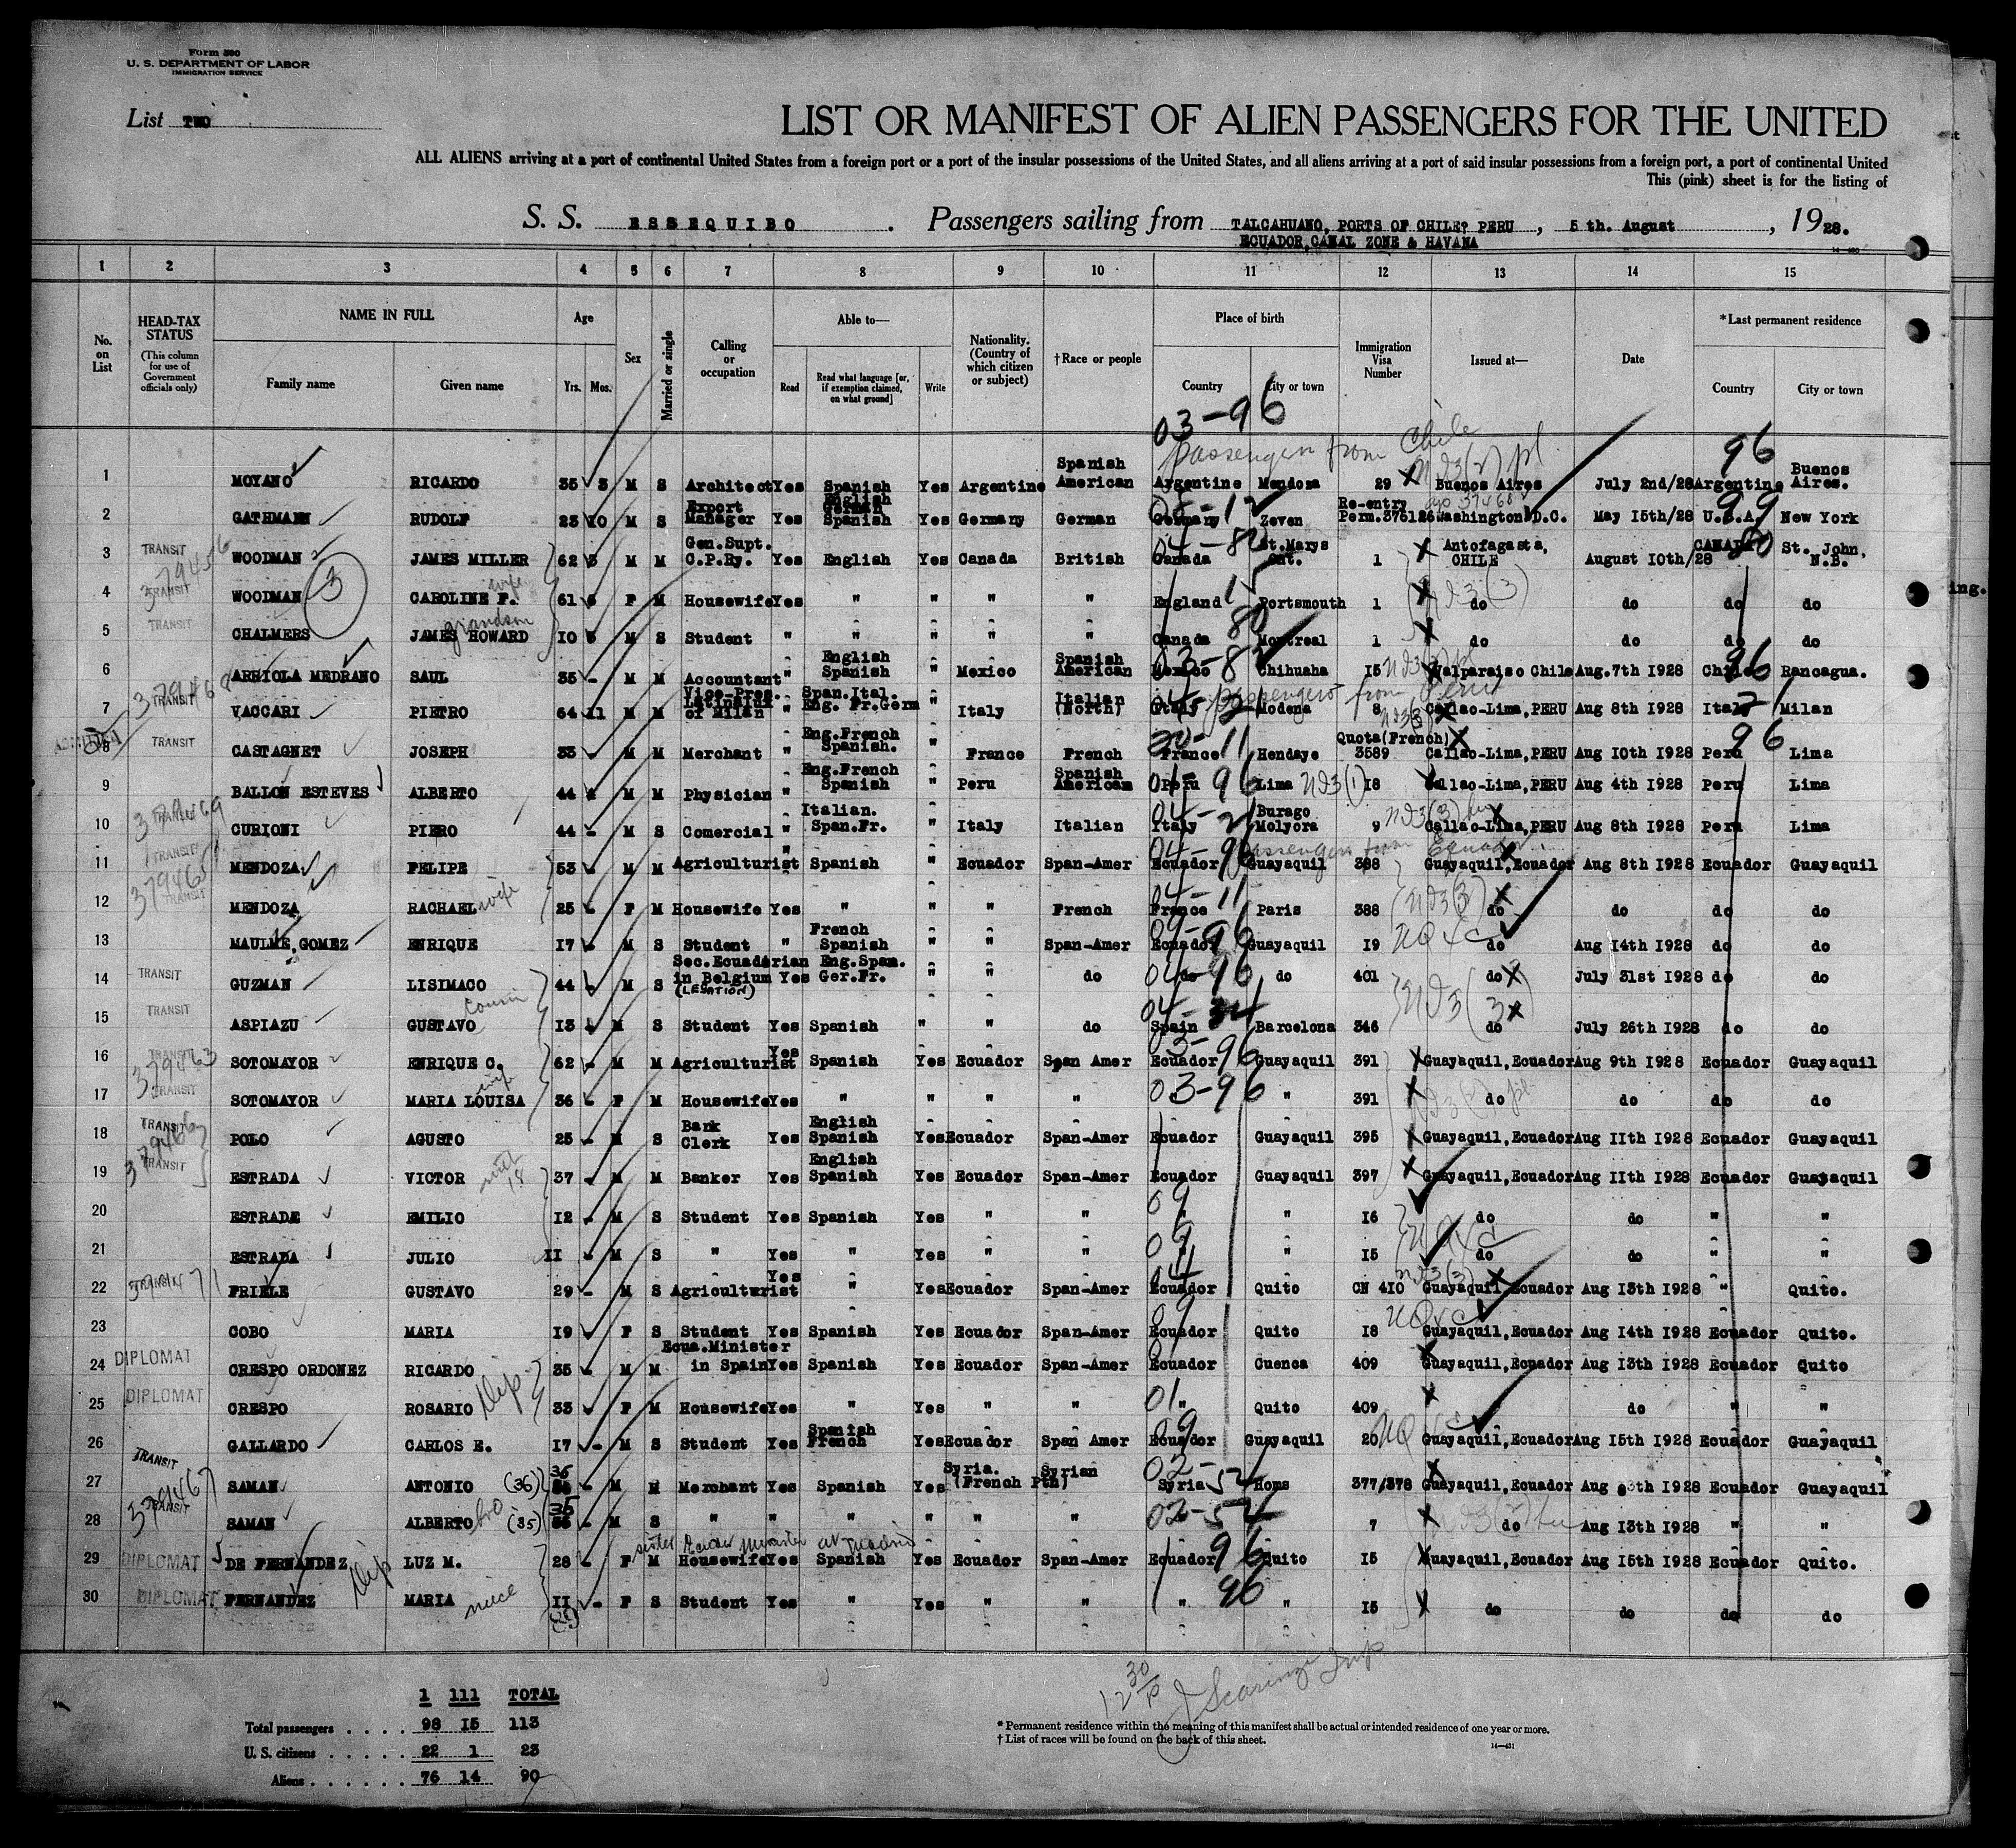 Form 500
U. S. DEPARTMENT OF LABOR
IMMIGRATION SERVICE
List TWO
LIST OR MANIFEST OF ALIEN PASSENGERS FOR THE UNITED
ALL ALIENS arriving at a port of continental United States from a foreign port or a port of the insular possessions of the United States, and all aliens arriving at a port of said insular possessions from a foreign port, a port of continental United
This (pink) sheet is for the listing of
S. S. ESSEQUIBO. Passengers sailing from TALCAHUANO, PORTS OF CHILE? PERU, 5 th. August, 1928.
ECUADOR, CANAL ZONE & HAVANA
1 2 3 4 5 6 7 8 9 10 11 12 13 14 15
No. on List
HEAD-TAX STATUS (This column for use of Government officials only)
NAME IN FULL
Family name Given name
Age Yrs. Mos.
Sex
Married or single
Calling or occupation
Able to—
Read Read what language [or, if exemption claimed, on what ground] Write
Nationality. (Country of which citizen or subject)
†Race or people
Place of birth
Country City or town
Immigration Visa Number
Issued at—
Date
*Last permanent residence
Country City or town
03-96
Passengers from Chile
1 MOYANO RICARDO 35 3 M S Architect Yes Spanish Yes Argentine Spanish American Argentine Mendoza 29 Buenos Aires July 2nd/28 Argentine Buenos Aires.
2 GATHMANN RUDOLF 23 10 M S Export Manager Yes English German Spanish Yes Germany German Germany Zeven Re-entry Perm.375126 Washington D.C. May 15th/28 U.S.A. New York
3 TRANSIT WOODMAN JAMES MILLER 62 3 M M Gen.Supt. C.P.Ry. Yes English Yes Canada British Canada St.Marys Ont. 1 Antofagasta, CHILE August 10th/28 CANADA St. John, N.B.
4 TRANSIT WOODMAN CAROLINE F. wife 61 F M Housewife Yes " " " " England Portsmouth 1 do do do do
5 TRANSIT CHALMERS JAMES HOWARD grandson 10 M S Student " " " " " Canada Montreal 1 do do do do
6 ARRIOLA MEDRANO SAUL 35 - M M Accountant " English Spanish " Mexico Spanish American Mexico Chihuaha 15 Valparaiso Chile Aug.7th 1928 Chile Rancagua.
Passengers from Peru
7 TRANSIT VACCARI PIETRO 64 11 M M Vice-Pres. Latinalux of Milan " Span.Ital. Eng. Fr.Germ " Italy Italian (North) Italy Modena 8 Callao-Lima, PERU Aug 8th 1928 Italy Milan
8 TRANSIT CASTAGNET JOSEPH 33 M M Merchant " Eng.French Spanish. " France French France Hendaye Quota(French) 3589 Callao-Lima, PERU Aug 10th 1928 Peru Lima
9 BALLON ESTEVES ALBERTO 44 M M Physician " Eng.French Spanish " Peru Spanish American Peru Lima 18 Callao-Lima, PERU Aug 4th 1928 Peru Lima
10 TRANSIT CURIONI PIERO 44 - M S Comercial " Italian. Span.Fr. " Italy Italian Italy Burago Molyora 9 Callao-Lima, PERU Aug 8th 1928 Peru Lima
Passengers from Ecuador
11 TRANSIT MENDOZA FELIPE 53 M M Agriculturist " Spanish " Ecuador Span-Amer Ecuador Guayaquil 388 Guayaquil, Ecuador Aug 8th 1928 Ecuador Guayaquil
12 TRANSIT MENDOZA RACHAEL wife 25 - F M Housewife Yes " " " French France Paris 388 do do do do
13 MAULME GOMEZ ENRIQUE 17 - M S Student " French Spanish " " Span-Amer Ecuador Guayaquil 19 do Aug 14th 1928 do do
14 TRANSIT GUZMAN LISIMACO 44 M S Sec.Ecuadorian in Belgium (LEGATION) Yes Eng.Span. Ger.Fr. " " do do do 401 do July 31st 1928 do do
15 TRANSIT ASPIAZU GUSTAVO cousin 13 M S Student Yes Spanish " " do Spain Barcelona 346 do July 26th 1928 do do
16 TRANSIT SOTOMAYOR ENRIQUE C. 62 - M M Agriculturist Yes Spanish Yes Ecuador Span Amer Ecuador Guayaquil 391 Guayaquil, Ecuador Aug 9th 1928 Ecuador Guayaquil
17 TRANSIT SOTOMAYOR MARIA LOUISA wife 36 - F M Housewife Yes " " " " 03-96 " 391 do do do do
18 TRANSIT POLO AGUSTO 25 - M S Bank Clerk Yes English Spanish Yes Ecuador Span-Amer Ecuador Guayaquil 395 Guayaquil, Ecuador Aug 11th 1928 Ecuador Guayaquil
19 TRANSIT ESTRADA VICTOR 37 - M M Banker Yes English Spanish Yes Ecuador Span-Amer Ecuador Guayaquil 397 Guayaquil, Ecuador Aug 11th 1928 Ecuador Guayaquil
20 ESTRADE EMILIO 12 - M S Student Yes Spanish Yes " " " " 16 do do " "
21 ESTRADA JULIO 11 - M S " Yes " Yes " " " " 15 do do " "
22 TRANSIT FRIELE GUSTAVO 29 - M S Agriculturist Yes " Yes Ecuador Span-Amer Ecuador Quito CN 410 Guayaquil Ecuador Aug 13th 1928 " Quito.
23 COBO MARIA 19 F S Student Yes Spanish Yes Ecuador Span-Amer Ecuador Quito 18 Guayaquil, Ecuador Aug 14th 1928 Ecuador Quito.
24 DIPLOMAT CRESPO ORDONEZ RICARDO 35 - M M Ecua.Minister in Spain Yes Spanish Yes Ecuador Span-Amer Ecuador Cuenca 409 Guayaquil, Ecuador Aug 13th 1928 Ecuador Quito
25 DIPLOMAT CRESPO ROSARIO Dip 33 - F M Housewife Yes " Yes " " 01 " Quito 409 do " "
26 GALLARDO CARLOS E. 17 - M S Student Yes Spanish French Yes Ecuador Span Amer Ecuador Guayaquil 20 Guayaquil, Ecuador Aug 15th 1928 Ecuador Guayaquil
27 TRANSIT SAMAN ANTONIO (36) 36 - M M Merchant Yes Spanish Yes Syria. (French Pth) Syrian Syria Homs 377/378 Guayaquil, Ecuador Aug 3th 1928 Ecuador Guayaquil
28 TRANSIT SAMAN ALBERTO bro (35) 35 - M S " " " " " " 02-54 " 7 do Aug 13th 1928 " "
sister Ecuador Minister at Madrid
29 DIPLOMAT DE FERNANDEZ LUZ M. 28 - F M Housewife Yes Spanish Yes Ecuador Span-Amer Ecuador Quito 15 Guayaquil, Ecuador Aug 15th 1928 Ecuador Quito.
30 DIPLOMAT FERNANDEZ Dip MARIA niece 11 - F S Student Yes " Yes " " " " 15 do do do do
1 111 TOTAL
Total passengers .... 98 15 113
U. S. citizens ..... 22 1 23
Aliens ...... 76 14 90
12 30/p J Scaringi Insp
* Permanent residence within the meaning of this manifest shall be actual or intended residence of one year or more.
† List of races will be found on the back of this sheet.
14—431